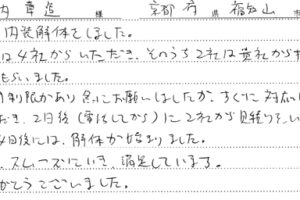 内 章造 様 京都 府 福知山 市
内装解体をしました。
は4社からいただき、そのうち2社は貴社から
もらいました。
制限があり 急にお願いしましたが、すぐに対応い
だき、2日後(電話してから)に2社から見積りを
4日後には、解体が始まりました。
スムーズにいき、満足しています。
がとうございました。